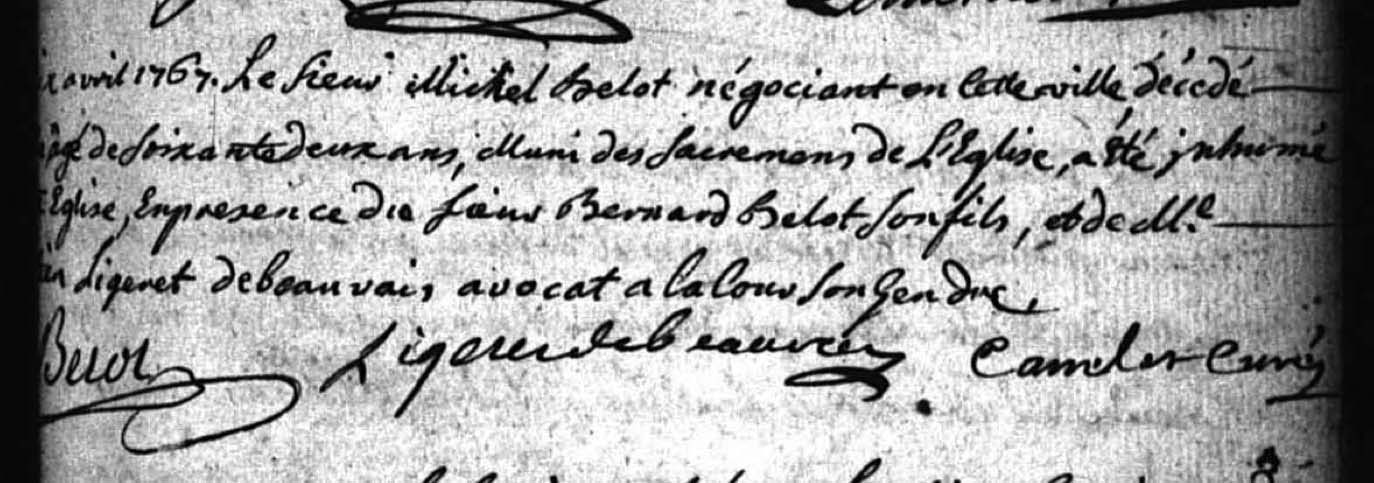 avril 1767. Le sieur Michel Belot négociant en cette ville décédé
agé de soixante deux ans, Muni des sacremens de L'Eglise, a été jnhumé
Eglise, En presence du sieur Bernard Belot son fils, et de Me
Ligeret de beauvais avocat a la cour son gendre,
Belot Ligeret de beauvais Camelet Curé